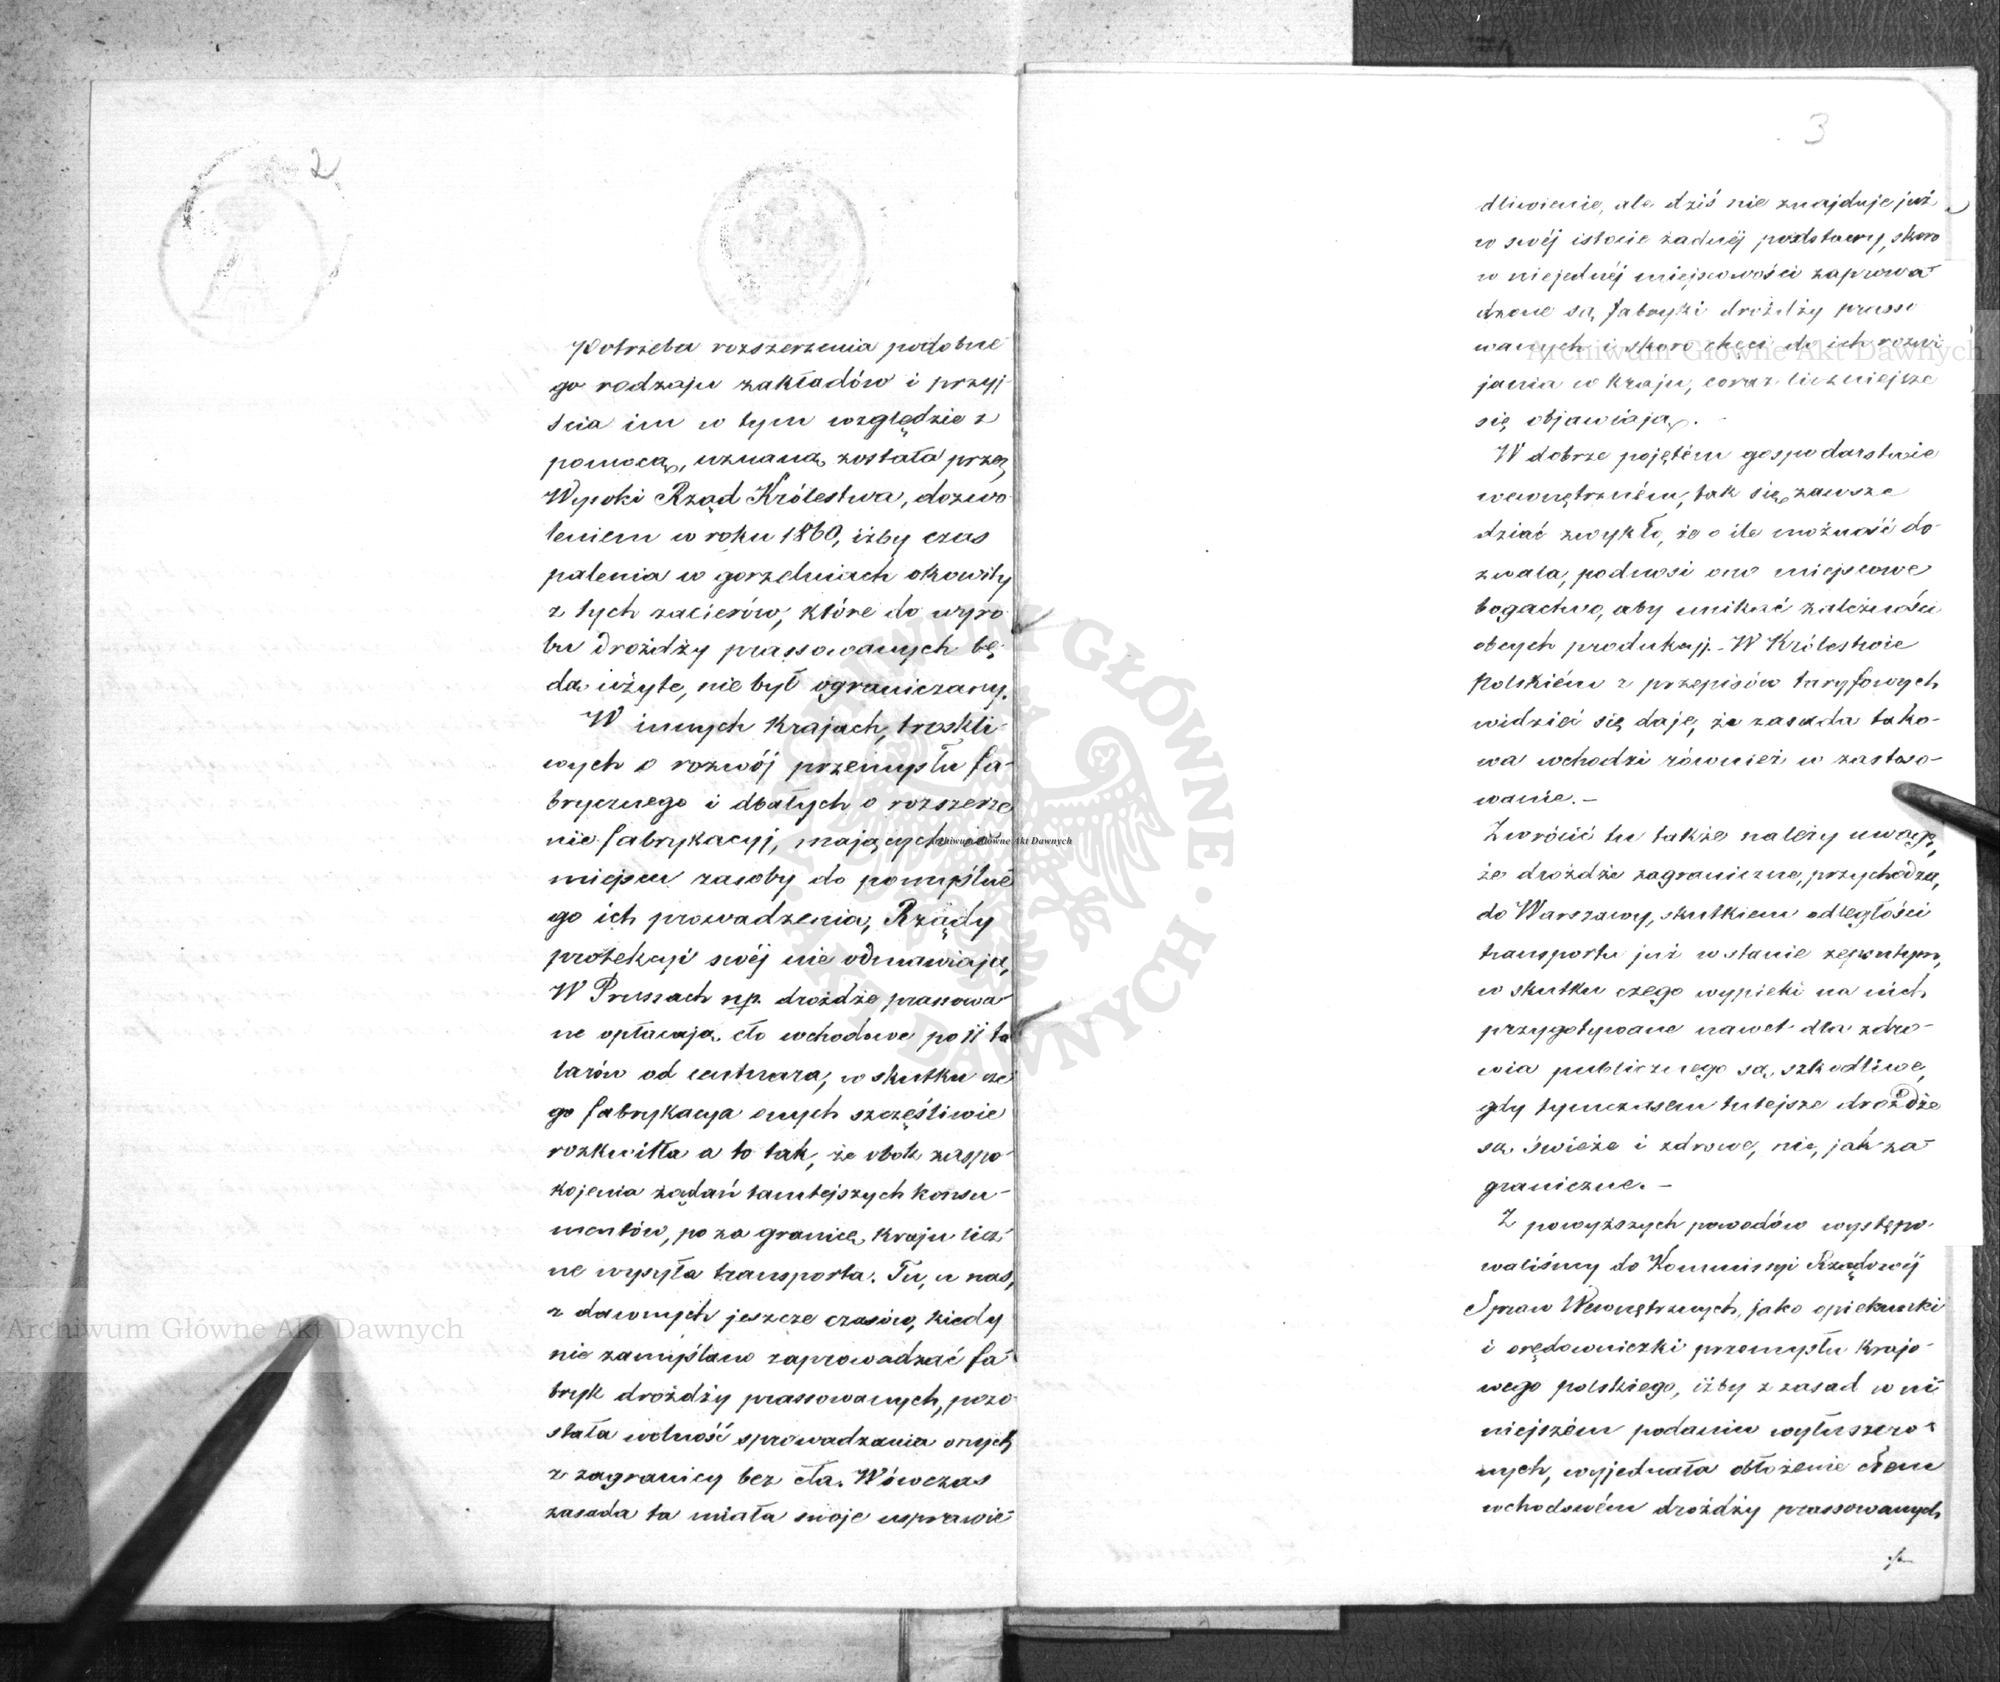 2
Potrzeba rozszerzenia podobne
go rodzaju zakładów i przyj-
ścia im w tym względzie z
pomocą, uznaną została przez
Wysoki Rząd Królestwa, dozwo
leniem w roku 1860, iżby czas
palenia w gorzelniach okowity
z tych zacierów, które do wyro
bu drożdży prassowanych bę-
dą użyte, nie był ograniczany.
W innych krajach, troskli-
wych o rozwój przemysłu fa-
brycznego i dbałych o rozszerze
nie fabrykacyj, mających na
miejscu zasoby do pomyślne
go ich prowadzenia, Rządy
protekcyi swéj nie odmawiają,
W Prusach np. drożdże prassowa-
ne opłacają cło wchodowe po 11 ta
larów od centnara, w skutku cze
go fabrykacya onych szczęśliwie
rozkwitła a to tak, że obok zaspo-
kojenia żądań tamtejszych konsu-
mentów, po za granicę kraju licz-
ne wysyła transporta. Tu, u nas,
z dawnych jeszcze czasów, kiedy
nie zamyślano zaprowadzać fa-
bryk drożdży prassowanych, pozo
stała wolność sprowadzania onych
z zagranicy bez cła. Wówczas
zasada ta miała swoje usprawie-
3
dliwienie, ale dziś nie znajduje już
w swéj istocie żadnéj podstawy, skoro
w niejednéj miejscowości zaprowa-
dzone są fabryki drożdży prasso
wanych i skoro chęci do ich rozwi
jania w kraju, coraz liczniejsze
się objawiają.
W dobrze pojętém gospodarstwie
wewnętrzném, tak się zawsze
dziać zwykło, że o ile możność do-
zwala, podnosi ono miejscowe
bogactwo, aby unikać zależności
obcych produkcyj. - W Królestwie
Polskiém z przepisów taryfowych
widzieć się daje, że zasada tako-
wa wchodzi również w zastoso-
wanie. -
Zwrócić tu także należy uwagę,
że drożdże zagraniczne, przychodzą
do Warszawy, skutkiem odległości
transportu już w stanie zepsutym,
w skutku czego wypieki na nich
przygotywane nawet dla zdro-
wia publicznego są szkodliwe,
gdy tymczasem tutejsze drożdże
są świeże i zdrowe, nie, jak za-
graniczne. -
Z powyższych powodów występo-
waliśmy do Kommissyi Rządowéj
Spraw Wewnętrznych, jako opiekunki
i orędowniczki przemysłu krajo-
wego polskiego, iżby z zasad w ni-
niejszém podaniu wyłuszczo-
nych, wyjednała obłożenie cłem
wchodowém drożdży prassowanych
./.
Archiwum Główne Akt Dawnych
Archiwum Główne Akt Dawnych
Archiwum Główne Akt Dawnych
ARCHIWUM GŁÓWNE · AKT DAWNYCH ·